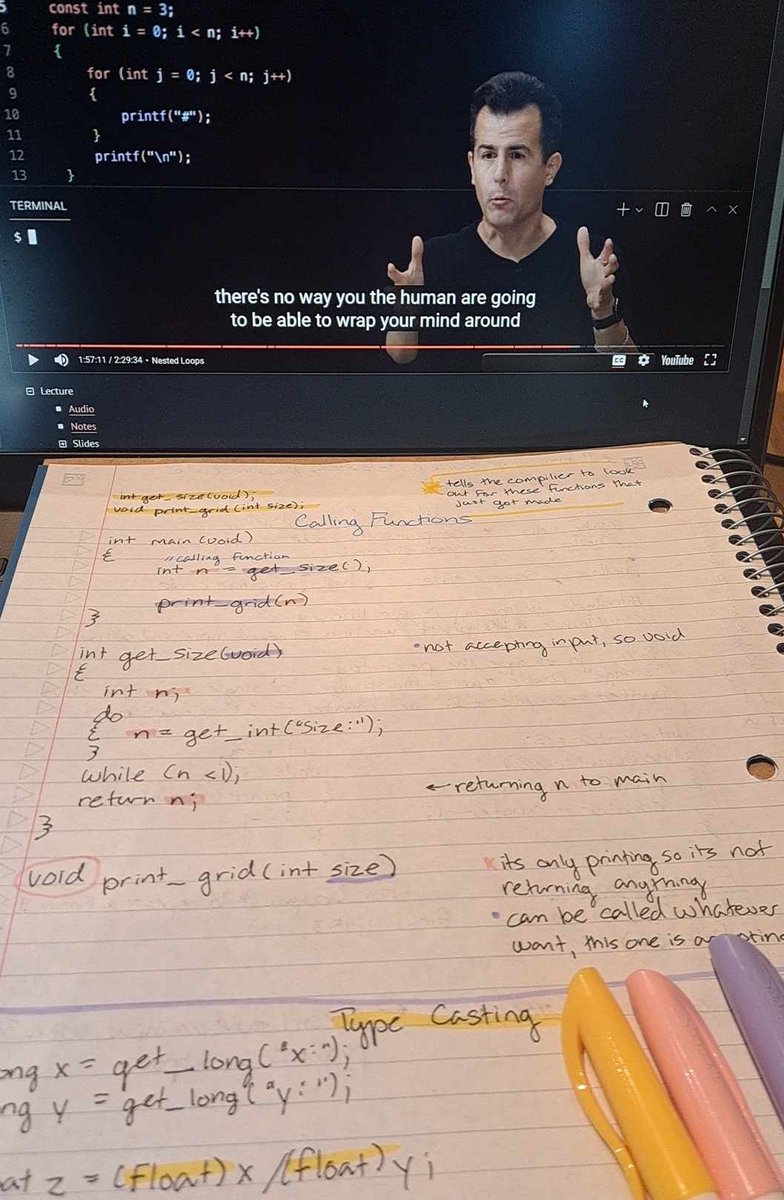 5 const int n = 3;
6 for (int i = 0; i < n; i++)
7 {
8 for (int j = 0; j < n; j++)
9 {
10 printf("#");
11 }
12 printf("\n");
13 }
TERMINAL
$
there's no way you the human are going
to be able to wrap your mind around
1:57:11 / 2:29:34 • Nested Loops
CC
YouTube
Lecture
Audio
Notes
Slides
int get_size(void);
void print_grid(int size);
tells the compilier to look
out for these functions that
just got made
Calling Functions
int main(void)
{ //calling function
int n = get_size();
print_grid(n)
}
int get_size(void)
•not accepting input, so void
{
int n;
do
{ n = get_int("Size:");
}
while (n <1);
return n;
←returning n to main
}
void print_grid(int size)
its only printing so its not
returning anything
• can be called whatever
want, this one is
Type Casting
ong x = get_long("x:");
ng y = get_long("y:");
at z = (float)x /(float)y;